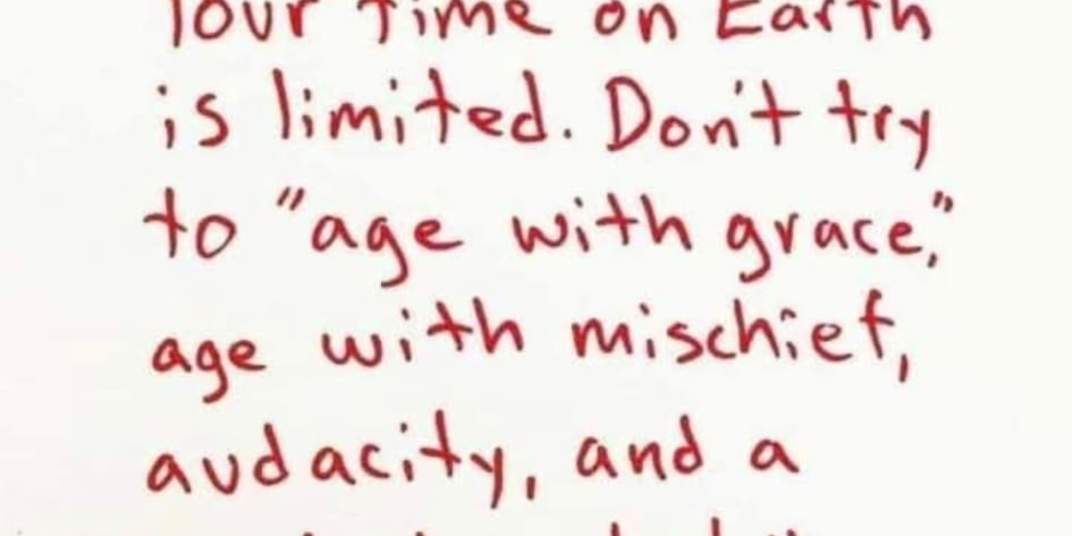 Your time on Earth
is limited. Don't try
to "age with grace,"
age with mischief,
audacity, and a